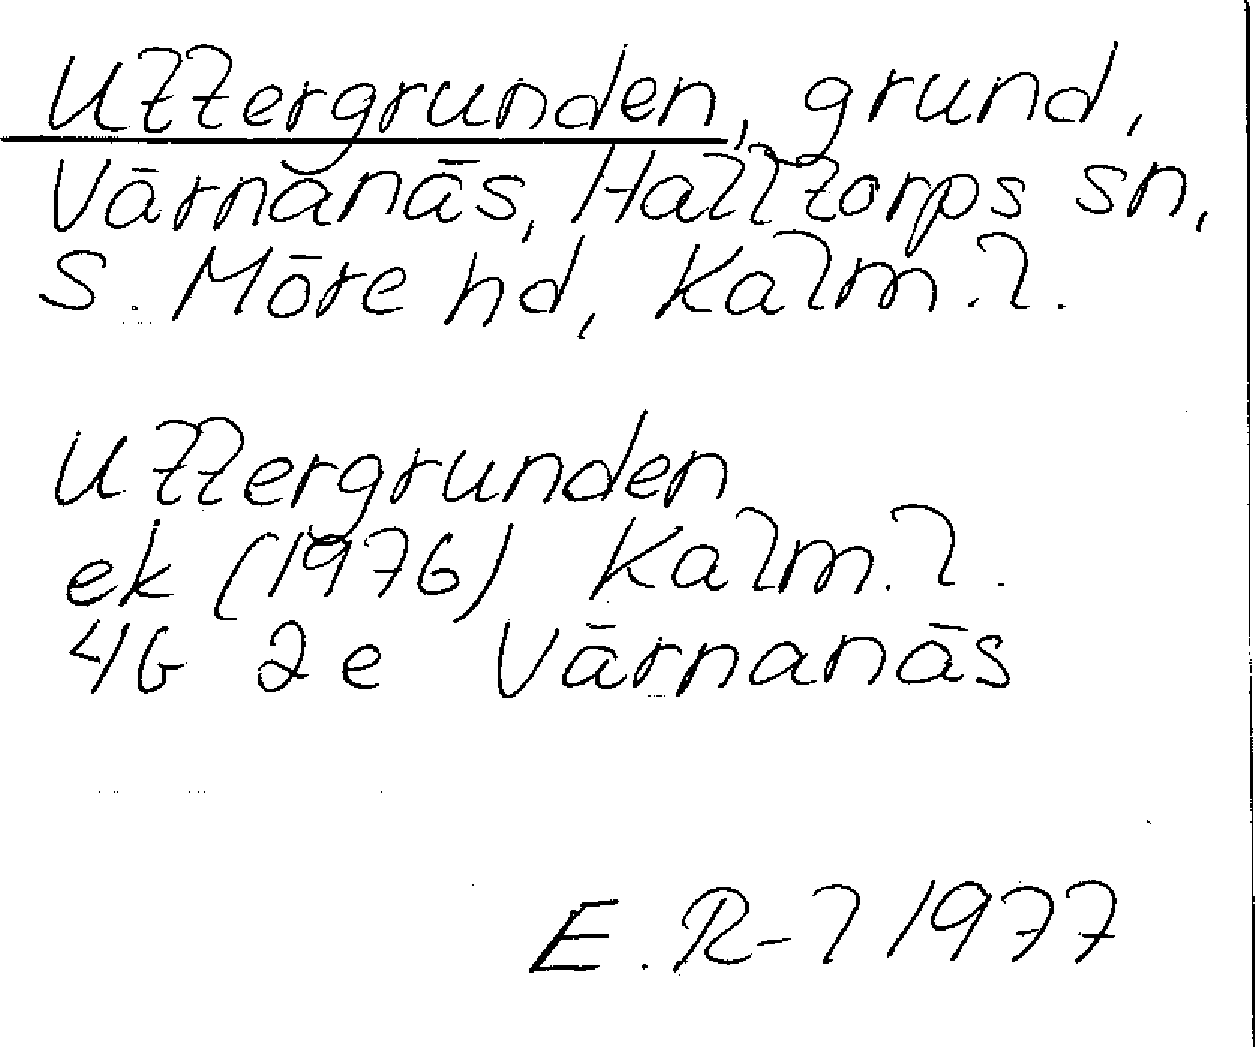 Uttergrunden, grund,
Värnanäs, Halltorps sn,
S. Möre hd, Kalm. l.
Uttergrunden
ek (1976) Kalm. l.
4G 2e Värnanäs
E. R-l 1977